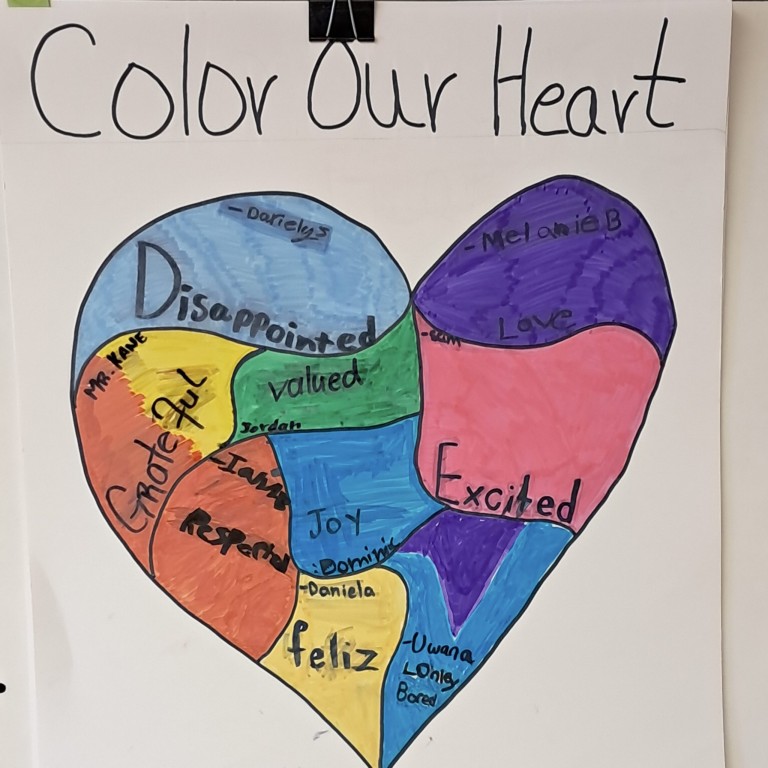 Color Our Heart
-Darielys
Disappointed
-Melanie B
Love
MR. KANE
Grateful
valued
Jordan
-Sam
Excited
Joy
:Dominic
-Daniela
feliz
-Uwana
Lonley
Bored